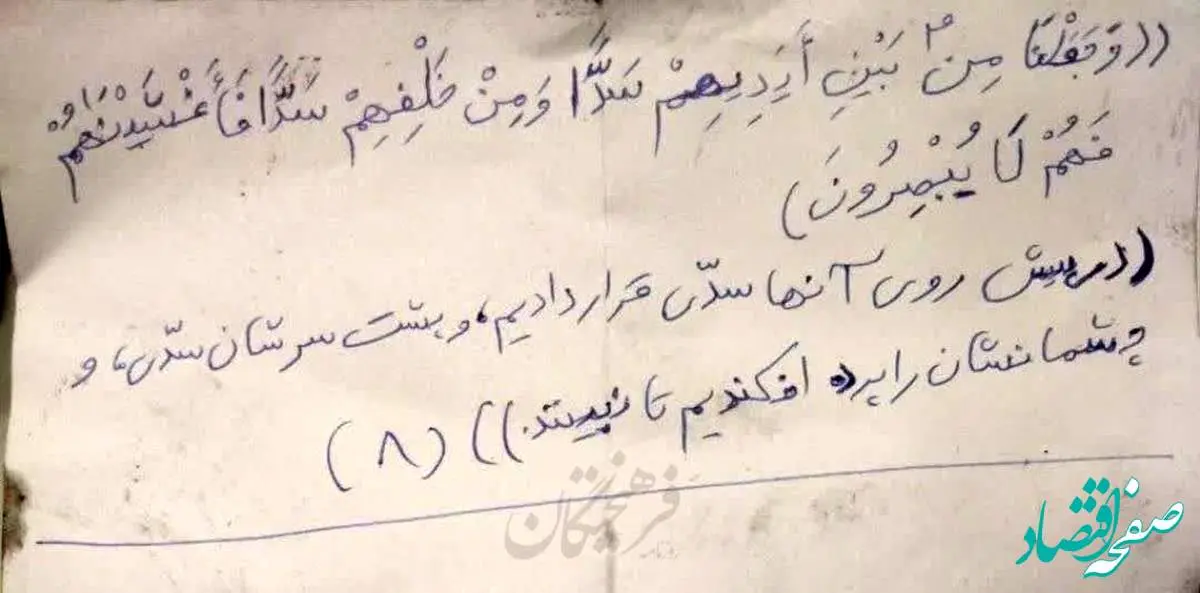 ((وَجَعَلْنَا مِنْ بَيْنِ أَيْدِيهِمْ سَدًّا وَمِنْ خَلْفِهِمْ سَدًّا فَأَغْشَيْنَاهُمْ
فَهُمْ لَا يُبْصِرُونَ)
((در پیش روی آنها سدّی قرار دادیم، و پشت سرشان سدّی، و
چشمانشان را پرده افکندیم تا نبینند.)) (۸)
فرهیختگان
صفحه اقتصاد